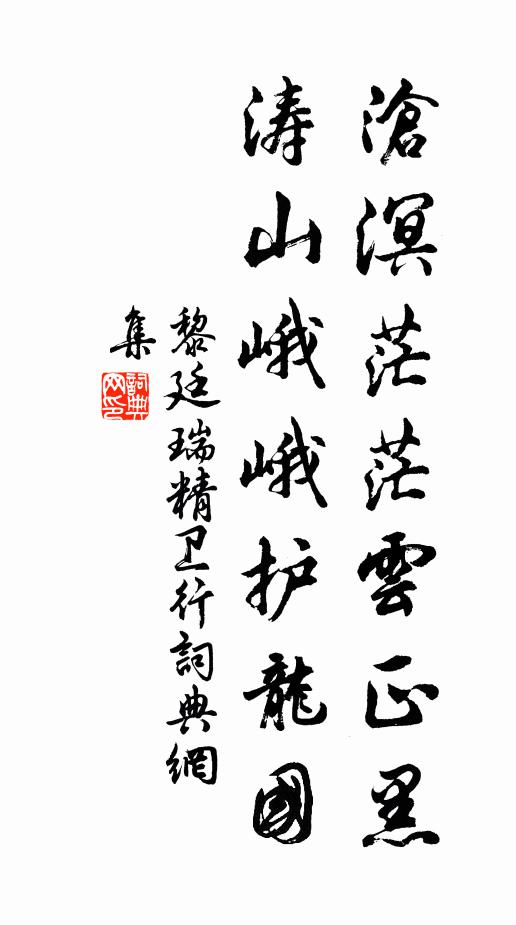 滄溟茫茫雲正黑
涛山峨峨护龍國
黎廷瑞精卫行詞典網
集
詞典
网印